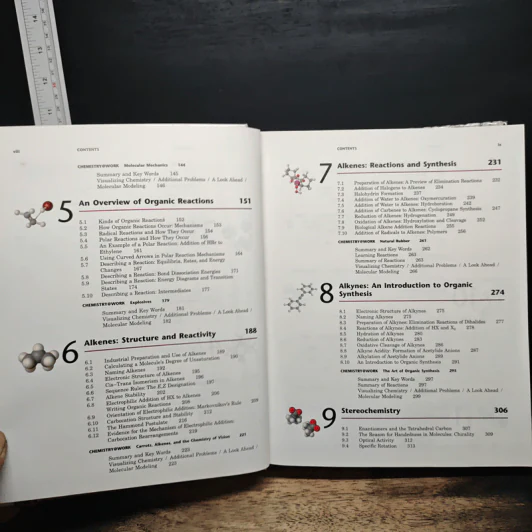 viii
CONTENTS
CHEMISTRY@WORK Molecular Mechanics 144
Summary and Key Words 145
Visualizing Chemistry / Additional Problems / A Look Ahead /
Molecular Modeling 146
5 An Overview of Organic Reactions 151
5.1 Kinds of Organic Reactions 152
5.2 How Organic Reactions Occur: Mechanisms 153
5.3 Radical Reactions and How They Occur 154
5.4 Polar Reactions and How They Occur 156
5.5 An Example of a Polar Reaction: Addition of HBr to
Ethylene 161
5.6 Using Curved Arrows in Polar Reaction Mechanisms 164
5.7 Describing a Reaction: Equilibria, Rates, and Energy
Changes 167
5.8 Describing a Reaction: Bond Dissociation Energies 171
5.9 Describing a Reaction: Energy Diagrams and Transition
States 174
5.10 Describing a Reaction: Intermediates 177
CHEMISTRY@WORK Explosives 179
Summary and Key Words 181
Visualizing Chemistry / Additional Problems / A Look Ahead /
Molecular Modeling 182
6 Alkenes: Structure and Reactivity 188
6.1 Industrial Preparation and Use of Alkenes 189
6.2 Calculating a Molecule's Degree of Unsaturation 190
6.3 Naming Alkenes 192
6.4 Electronic Structure of Alkenes 195
6.5 Cis–Trans Isomerism in Alkenes 196
6.6 Sequence Rules: The E,Z Designation 197
6.7 Alkene Stability 202
6.8 Electrophilic Addition of HX to Alkenes 206
Writing Organic Reactions 208
6.9 Orientation of Electrophilic Addition: Markovnikov's Rule 209
6.10 Carbocation Structure and Stability 213
6.11 The Hammond Postulate 216
6.12 Evidence for the Mechanism of Electrophilic Addition:
Carbocation Rearrangements 219
CHEMISTRY@WORK Carrots, Alkenes, and the Chemistry of Vision 221
Summary and Key Words 223
Visualizing Chemistry / Additional Problems / A Look Ahead /
Molecular Modeling 223
CONTENTS
ix
7 Alkenes: Reactions and Synthesis 231
7.1 Preparation of Alkenes: A Preview of Elimination Reactions 232
7.2 Addition of Halogens to Alkenes 234
7.3 Halohydrin Formation 237
7.4 Addition of Water to Alkenes: Oxymercuration 239
7.5 Addition of Water to Alkenes: Hydroboration 242
7.6 Addition of Carbenes to Alkenes: Cyclopropane Synthesis 247
7.7 Reduction of Alkenes: Hydrogenation 249
7.8 Oxidation of Alkenes: Hydroxylation and Cleavage 252
7.9 Biological Alkene Addition Reactions 255
7.10 Addition of Radicals to Alkenes: Polymers 256
CHEMISTRY@WORK Natural Rubber 261
Summary and Key Words 262
Learning Reactions 263
Summary of Reactions 263
Visualizing Chemistry / Additional Problems / A Look Ahead /
Molecular Modeling 266
8 Alkynes: An Introduction to Organic
Synthesis 274
8.1 Electronic Structure of Alkynes 275
8.2 Naming Alkynes 275
8.3 Preparation of Alkynes: Elimination Reactions of Dihalides 277
8.4 Reactions of Alkynes: Addition of HX and X2 278
8.5 Hydration of Alkynes 280
8.6 Reduction of Alkynes 283
8.7 Oxidative Cleavage of Alkynes 286
8.8 Alkyne Acidity: Formation of Acetylide Anions 287
8.9 Alkylation of Acetylide Anions 289
8.10 An Introduction to Organic Synthesis 291
CHEMISTRY@WORK The Art of Organic Synthesis 295
Summary and Key Words 297
Summary of Reactions 297
Visualizing Chemistry / Additional Problems / A Look Ahead /
Molecular Modeling 299
9 Stereochemistry 306
9.1 Enantiomers and the Tetrahedral Carbon 307
9.2 The Reason for Handedness in Molecules: Chirality 309
9.3 Optical Activity 312
9.4 Specific Rotation 313